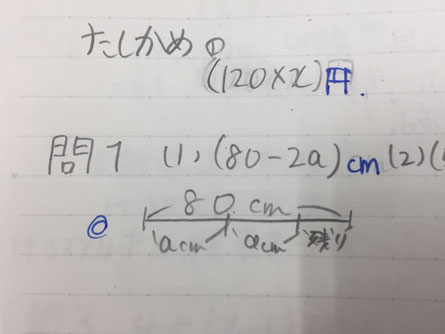 たしかめ①
(120×x)円.
問1 (1) (80-2a)cm (2) (
◎ 80cm
acm acm 残り